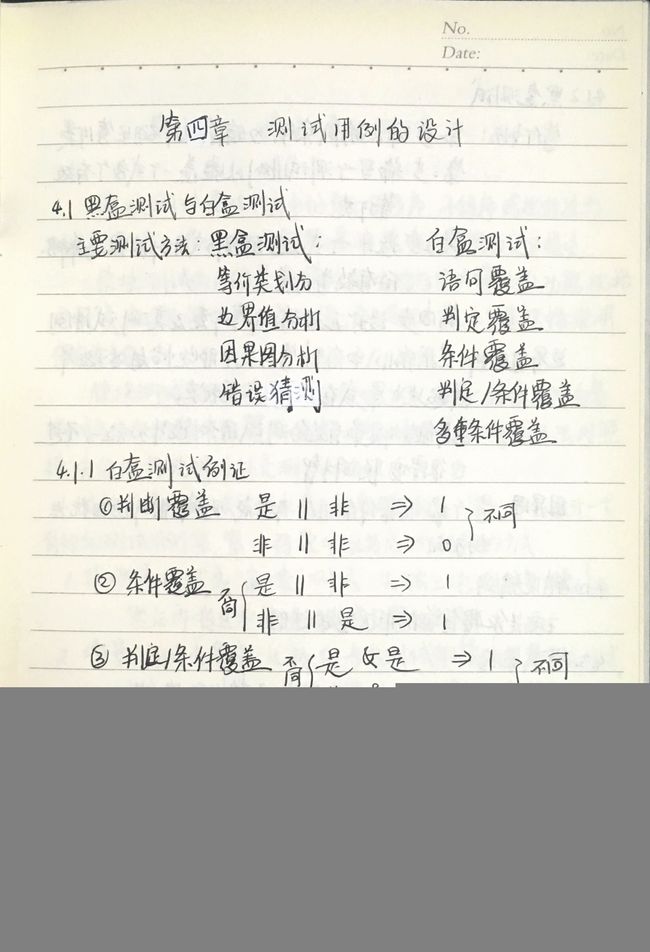 No.
Date:
第四章 测试用例的设计
4.1 黑盒测试与白盒测试
主要测试方法：黑盒测试： 白盒测试：
等价类划分 语句覆盖
边界值分析 判定覆盖
因果图分析 条件覆盖
错误猜测 判定/条件覆盖
多重条件覆盖
4.1.1 白盒测试例证
①判断覆盖 是 || 非 => 1 不同
非 || 非 => 0
② 条件覆盖 不同 是 || 非 => 1
非 || 是 => 1
③ 判定/条件覆盖 不同 是 & 是 => 1 不同